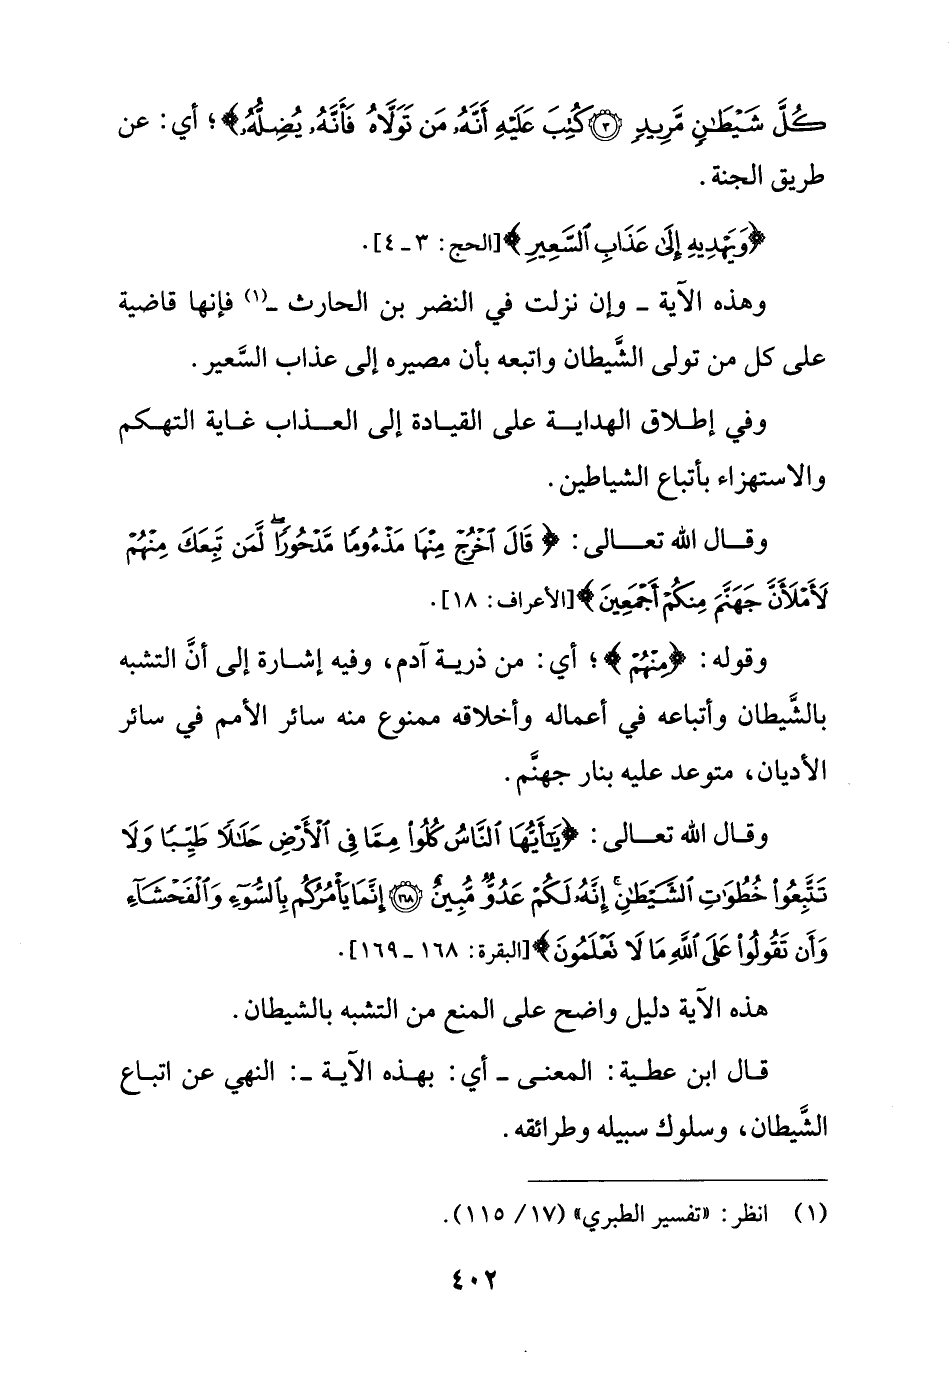 كُلَّ شَيْطَٰنٍ مَّرِيدٍ ﴿٣﴾ كُتِبَ عَلَيْهِ أَنَّهُۥ مَن تَوَلَّاهُ فَأَنَّهُۥ يُضِلُّهُۥ﴾؛ أي: عن
طريق الجنة.
﴿وَيَهْدِيهِ إِلَىٰ عَذَابِ ٱلسَّعِيرِ﴾[الحج: ٣ـ٤].
وهذه الآية ـ وإن نزلت في النضر بن الحارث ـ(١) فإنها قاضية
على كل من تولى الشَّيطان واتبعه بأن مصيره إلى عذاب السَّعير.
وفي إطلاق الهداية على القيادة إلى العذاب غاية التهكم
والاستهزاء بأتباع الشياطين.
وقال الله تعالى: ﴿قَالَ ٱخْرُجْ مِنْهَا مَذْءُومًا مَّدْحُورًا ۖ لَّمَن تَبِعَكَ مِنْهُمْ
لَأَمْلَأَنَّ جَهَنَّمَ مِنكُمْ أَجْمَعِينَ﴾[الأعراف: ١٨].
وقوله: ﴿مِنْهُمْ﴾؛ أي: من ذرية آدم، وفيه إشارة إلى أنَّ التشبه
بالشَّيطان وأتباعه في أعماله وأخلاقه ممنوع منه سائر الأمم في سائر
الأديان، متوعد عليه بنار جهنَّم.
وقال الله تعالى: ﴿يَٰٓأَيُّهَا ٱلنَّاسُ كُلُوا۟ مِمَّا فِى ٱلْأَرْضِ حَلَٰلًا طَيِّبًا وَلَا
تَتَّبِعُوا۟ خُطُوَٰتِ ٱلشَّيْطَٰنِ ۚ إِنَّهُۥ لَكُمْ عَدُوٌّ مُّبِينٌ ﴿١٦٨﴾ إِنَّمَا يَأْمُرُكُم بِٱلسُّوٓءِ وَٱلْفَحْشَآءِ
وَأَن تَقُولُوا۟ عَلَى ٱللَّهِ مَا لَا تَعْلَمُونَ﴾[البقرة: ١٦٨ـ١٦٩].
هذه الآية دليل واضح على المنع من التشبه بالشيطان.
قال ابن عطية: المعنى ـ أي: بهذه الآية ـ: النهي عن اتباع
الشَّيطان، وسلوك سبيله وطرائقه.
(١) انظر: «تفسير الطبري» (١٧/ ١١٥).
٤٠٢